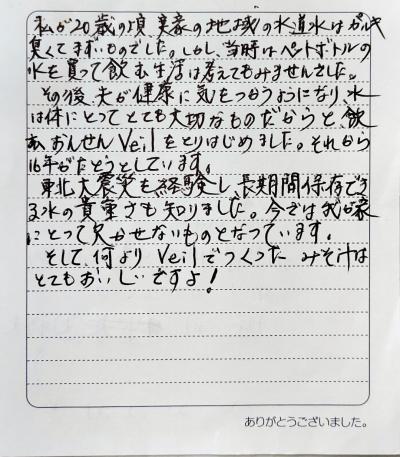 私が20歳の頃、実家の地域の水道水はカルキ
臭くてまずいものでした。しかし、当時はペットボトルの
水を買って飲む生活は考えてもみませんでした。
その後、夫が健康に気をつかうようになり、水
は体にとってとても大切なものだからと、飲
むおんせんVeilをとりはじめました。それから
16年がたとうとしています。
東北大震災も経験し、長期間保存でき
る水の貴重さも知りました。今では我が家
にとって欠かせないものとなっています。
そして、何よりVeilでつくったみそ汁は
とてもおいしいですよ!
ありがとうございました。